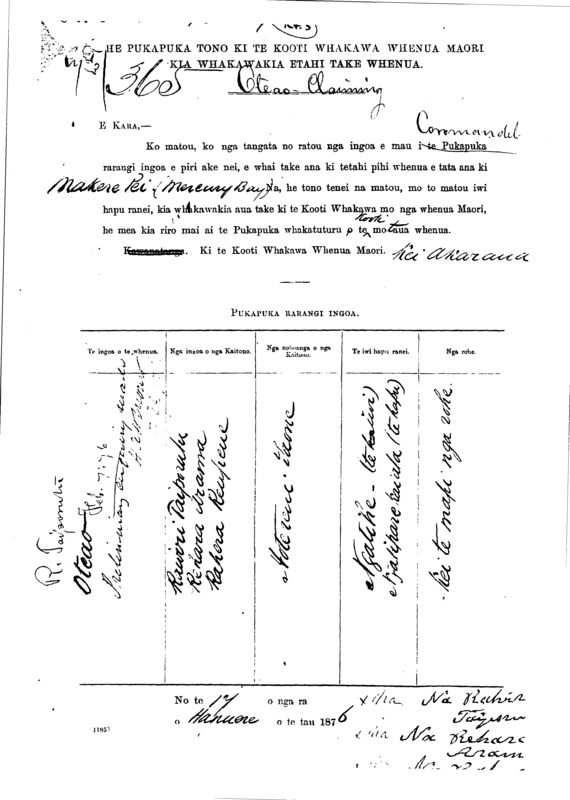 HE PUKAPUKA TONO KI TE KOOTI WHAKAWA WHENUA MAORI
KIA WHAKAWAKIA ETAHI TAKE WHENUA.
1365 Oteao - Claiming
E KARA,—
Coromandel
Ko matou, ko nga tangata no ratou nga ingoa e mau i te Pukapuka
rarangi ingoa e piri ake nei, e whai take ana ki tetahi pihi whenua e tata ana ki
(Mercury Bay) a, he tono tenei na matou, mo to matou iwi
hapu ranei, kia whakawakia aua take ki te Kooti Whakawa mo nga whenua Maori,
he mea kia riro mai ai te Pukapuka whakatuturu o te Kooti mo taua whenua.
Kawanatanga. Ki te Kooti Whakawa Whenua Maori. Kei Akarana
PUKAPUKA RARANGI INGOA.
Te ingoa o te whenua.
Nga ingoa o nga Kaitono.
Nga nohoanga o nga Kaitono.
Te iwi hapu ranei.
Nga rohe.
R. Taiporutu
Oteao
Feb. 7/76
Preliminary enquiry made
Rawiri Taiporutu
Rehara Arama
Rahera Reupene
(te iwi)
(te hapu)
Kei te mapi nga rohe.
No te 17 o nga ra
o Hanuere o te tau 1876
x Na Rawiri
Na Rehara
Aram